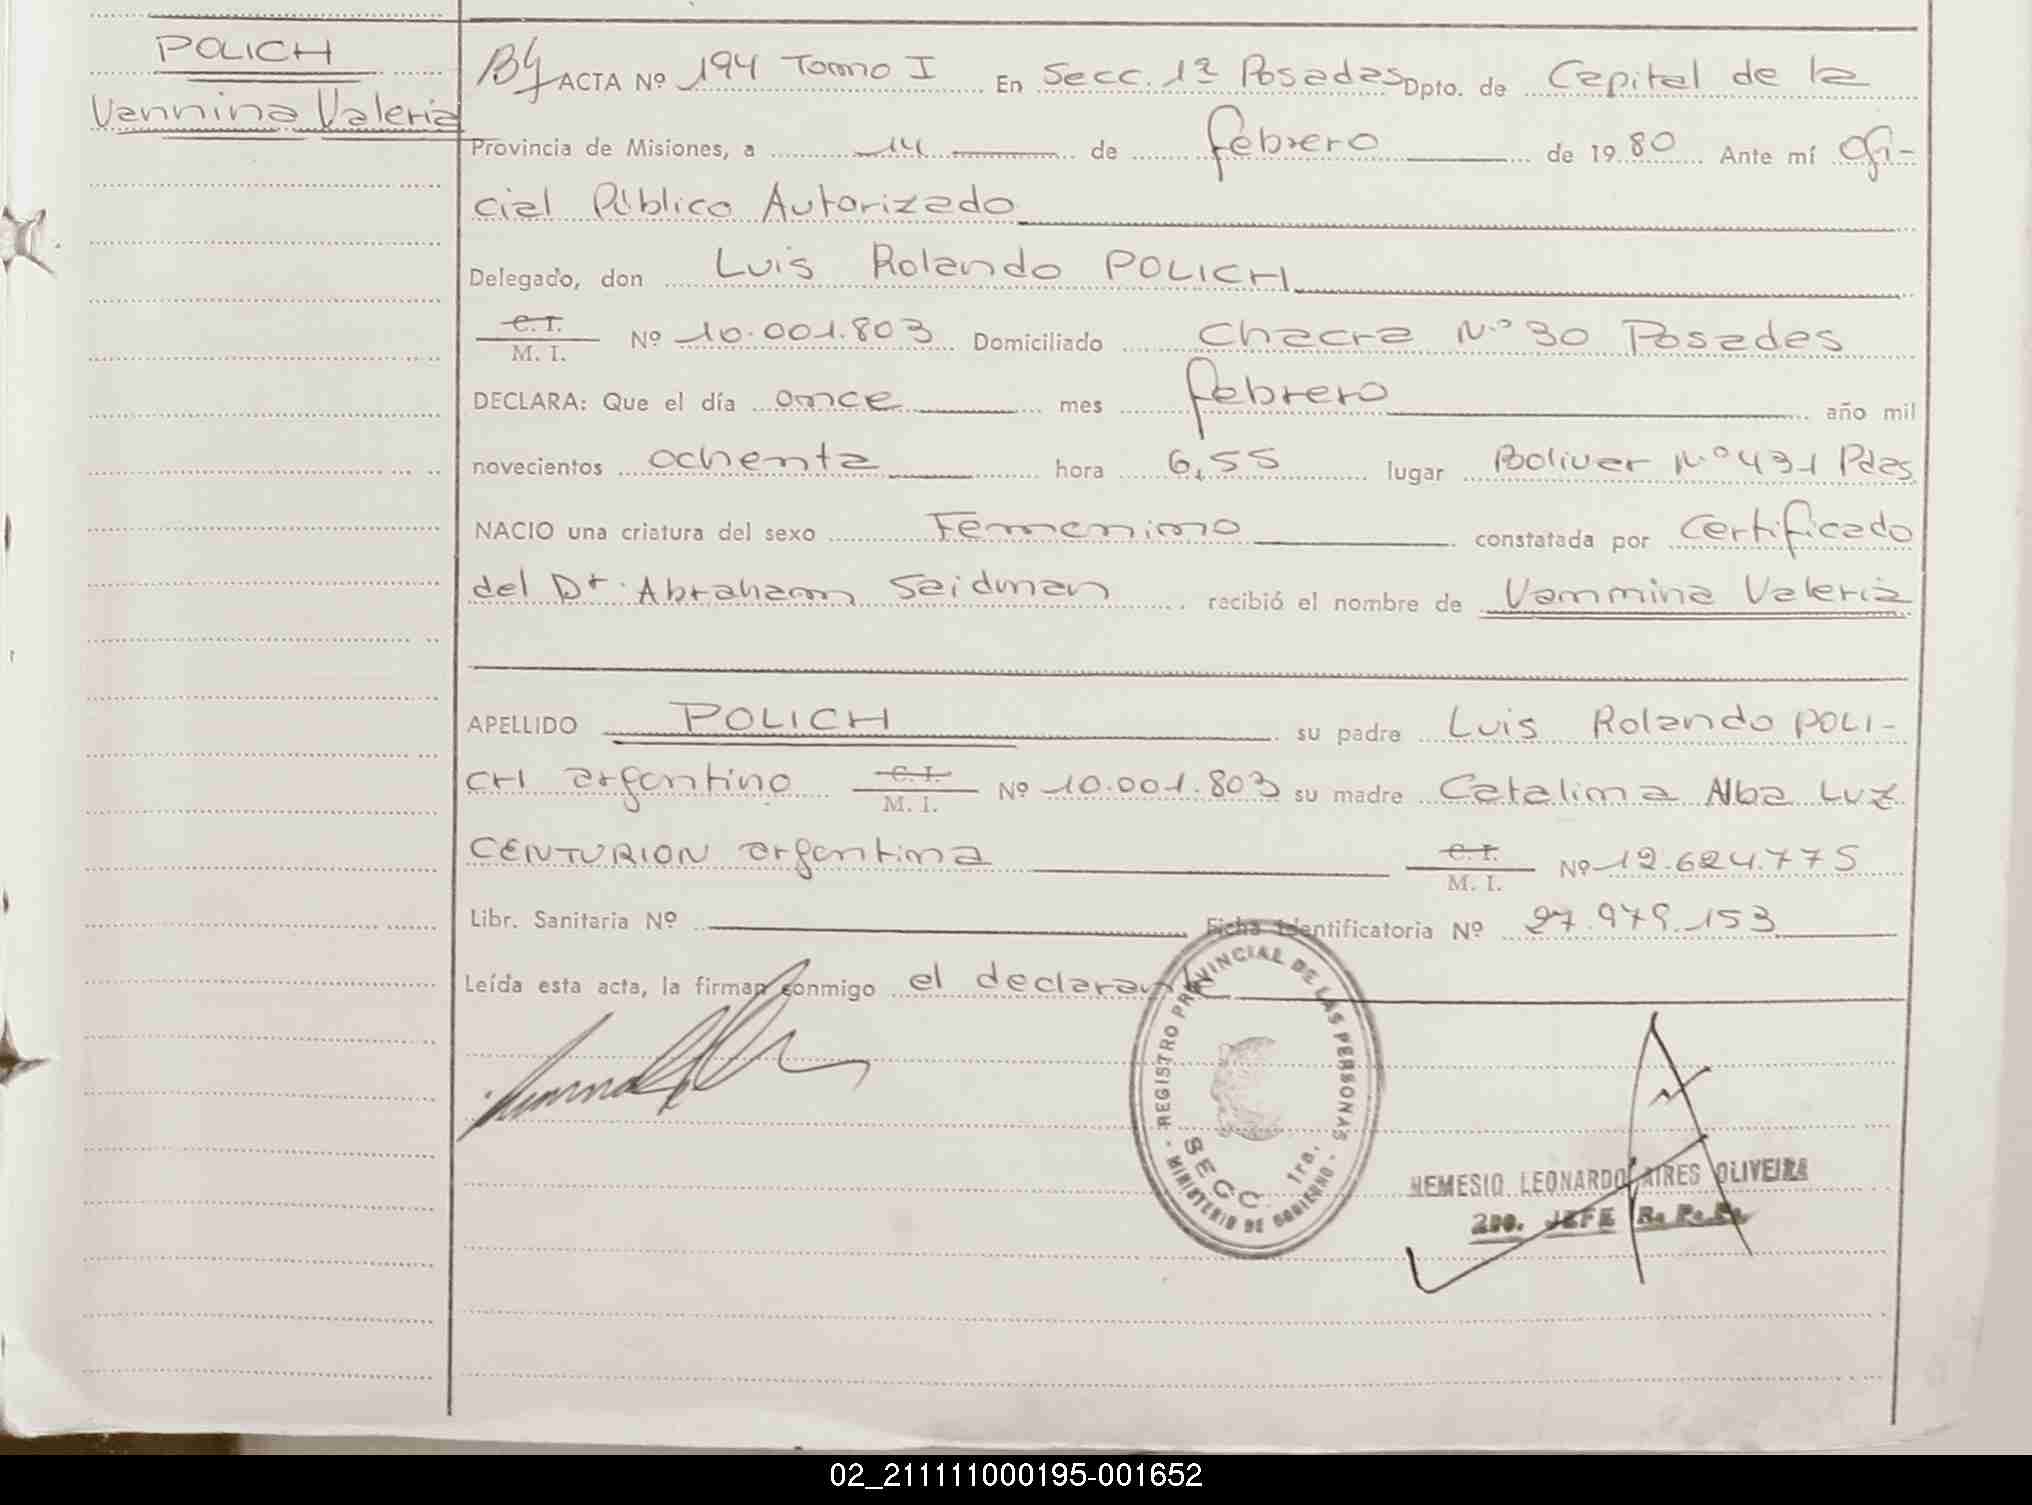 POLICH
Vannina Valeria
ACTA Nº 194 Tomo I En Secc. 1ª Posadas Dpto. de Capital de la
Provincia de Misiones, a 14 de febrero de 1980 Ante mí Ofi-
cial Público Autorizado
Delegado, don Luis Rolando POLICH
C.I.
M. I. Nº 10.001.803 Domiciliado Chacra Nº 30 Posadas
DECLARA: Que el día once mes febrero año mil
novecientos ochenta hora 6,55 lugar Bolivar Nº 431 Pdas
NACIO una criatura del sexo Femenino constatada por Certificado
del Dr. Abraham Saidman recibió el nombre de Vannina Valeria
APELLIDO POLICH su padre Luis Rolando POLI-
CH argentino C.I. M. I. Nº 10.001.803 su madre Catalina Alba Luz
CENTURION argentina C.I. M. I. Nº 12.624.775
Libr. Sanitaria Nº Ficha Identificatoria Nº 27.979.153
Leída esta acta, la firman conmigo el declarante
REGISTRO PROVINCIAL DE LAS PERSONAS
SECC. 1ra.
MINISTERIO DE GOBIERNO
NEMESIO LEONARDO AIRES OLIVEIRA
2do. JEFE R. P. P.
02_211111000195-001652